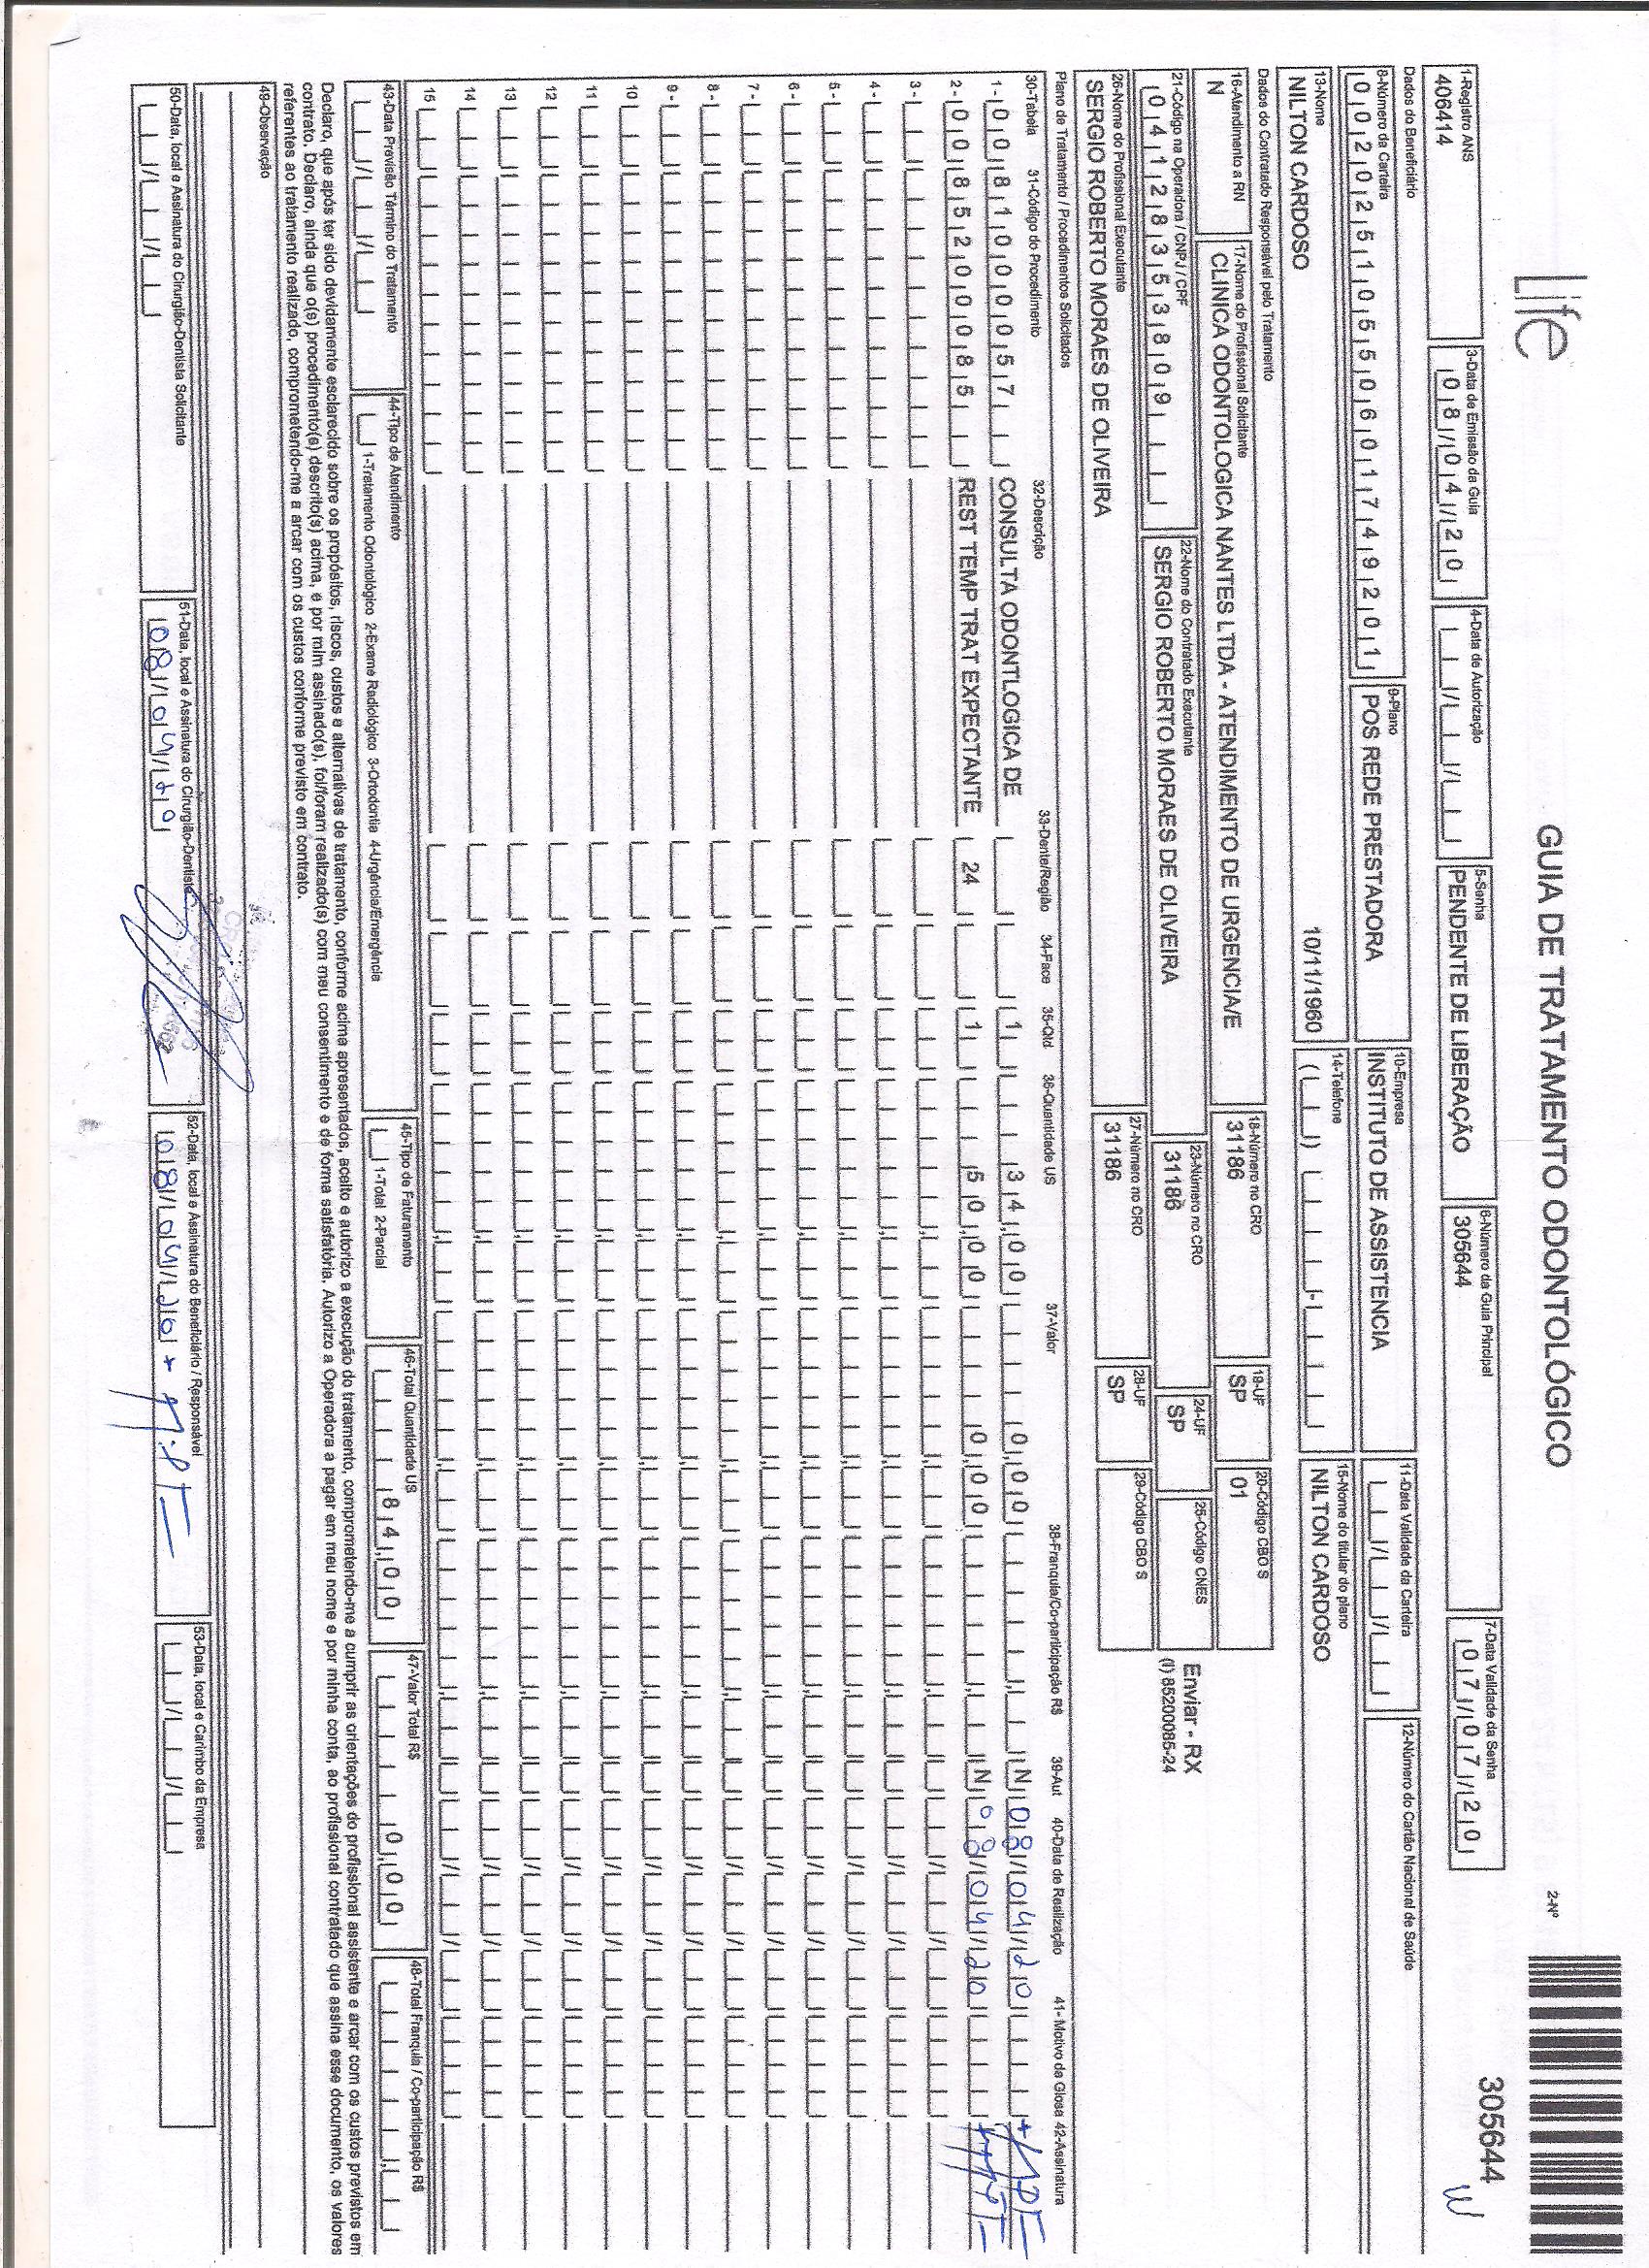 Life
GUIA DE TRATAMENTO ODONTOLÓGICO
2-Nº
305644
1-Registro ANS
406414
3-Data de Emissão da Guia
08/04/20
4-Data de Autorização
5-Senha
PENDENTE DE LIBERAÇÃO
6-Número da Guia Principal
305644
7-Data Validade da Senha
07/07/20
Dados do Beneficiário
8-Número da Carteira
00202510550601749201
9-Plano
POS REDE PRESTADORA
10-Empresa
INSTITUTO DE ASSISTENCIA
11-Data Validade da Carteira
12-Número do Cartão Nacional de Saúde
13-Nome
NILTON CARDOSO
10/11/1960
14-Telefone
15-Nome do titular do plano
NILTON CARDOSO
Dados do Contratado Responsável pelo Tratamento
16-Atendimento a RN
N
17-Nome do Profissional Solicitante
CLINICA ODONTOLOGICA NANTES LTDA - ATENDIMENTO DE URGENCIA/E
18-Número no CRO
31186
19-UF
SP
20-Código CBO S
01
21-Código na Operadora / CNPJ / CPF
04128353809
22-Nome do Contratado Executante
SERGIO ROBERTO MORAES DE OLIVEIRA
23-Número no CRO
31186
24-UF
SP
25-Código CNES
Enviar - RX
(I) 85200085-24
26-Nome do Profissional Executante
SERGIO ROBERTO MORAES DE OLIVEIRA
27-Número no CRO
31186
28-UF
SP
29-Código CBO S
Plano de Tratamento / Procedimentos Solicitados
30-Tabela 31-Código do Procedimento 32-Descrição 33-Dente/Região 34-Face 35-Qtd 36-Quantidade US 37-Valor 38-Franquia/Co-participação R$ 39-Aut 40-Data de Realização 41- Motivo da Glosa 42-Assinatura
1- 00 81000057 CONSULTA ODONTLOGICA DE 1 34,00 0,00 N 08/04/20
2- 00 85200085 REST TEMP TRAT EXPECTANTE 24 1 50,00 0,00 N 08/04/20
3-
4-
5-
6-
7-
8-
9-
10
11
12
13
14
15
43-Data Previsão Término do Tratamento
44-Tipo de Atendimento
1-Tratamento Odontológico 2-Exame Radiológico 3-Ortodontia 4-Urgência/Emergência
45-Tipo de Faturamento
1-Total 2-Parcial
46-Total Quantidade US
84,00
47-Valor Total R$
0,00
48-Total Franquia / Co-participação R$
Declaro, que após ter sido devidamente esclarecido sobre os propósitos, riscos, custos e alternativas de tratamento, conforme acima apresentados, aceito e autorizo a execução do tratamento, comprometendo-me a cumprir as orientações do profissional assistente e arcar com os custos previstos em
contrato. Declaro, ainda que o(s) procedimento(s) descrito(s) acima, e por mim assinado(s), foi/foram realizado(s) com meu consentimento e de forma satisfatória. Autorizo a Operadora a pagar em meu nome e por minha conta, ao profissional contratado que assina esse documento, os valores
referentes ao tratamento realizado, comprometendo-me a arcar com os custos conforme previsto em contrato.
49-Observação
50-Data, local e Assinatura do Cirurgião-Dentista Solicitante
51-Data, local e Assinatura do Cirurgião-Dentista
08/04/20
52-Data, local e Assinatura do Beneficiário / Responsável
08/04/20
53-Data, local e Carimbo da Empresa